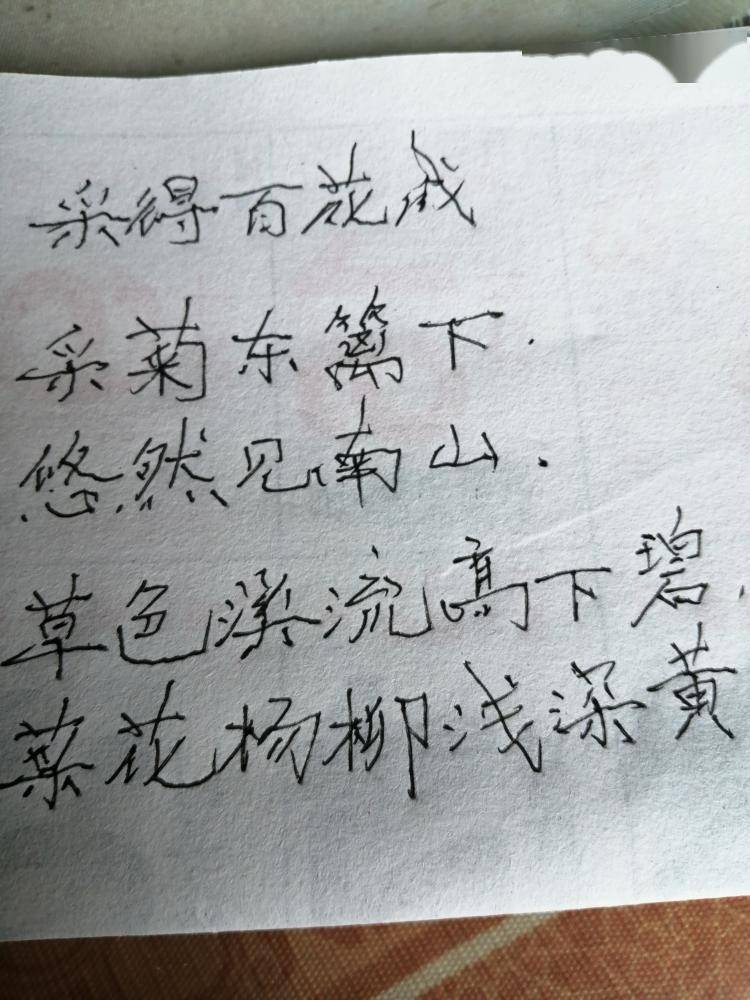 采得百花成
采菊东篱下.
悠然见南山.
草色溪流高下碧.
菜花杨柳浅深黄